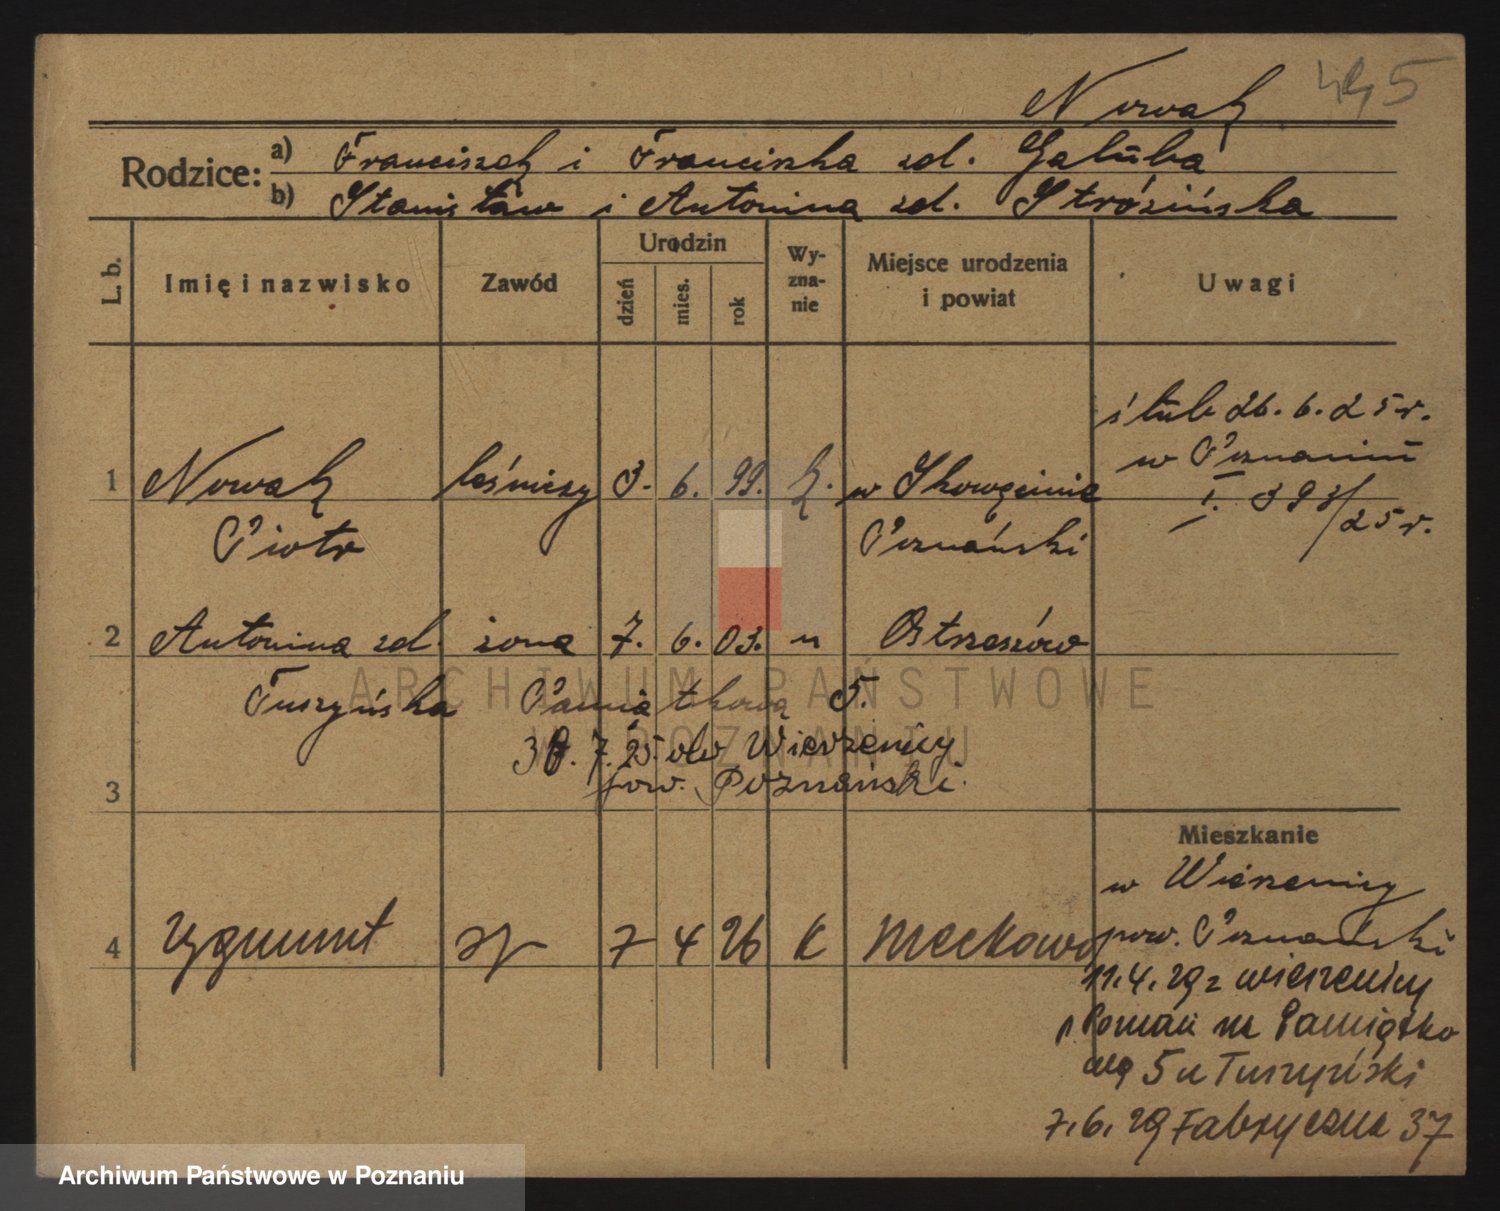 Nowak 495
Rodzice: a) Franciszek i Franciszka zd. Gałuba
b) Stanisław i Antonina zd. Strózińska
L. b. Imię i nazwisko Zawód Urodzin dzień mies. rok Wy-zna-nie Miejsce urodzenia i powiat Uwagi
ślub 26. 6. 25 r.
w Poznaniu
1 Nowak leśniczy 3. 6. 99. k. w Skowęcinie I. 393/25 r.
Piotr Poznański
2 Antonina zd. żona 7. 6. 03. " Ostrzeszów
Tuszyńska Pamiątkowa 5.
30. 7. 25. do Wierzenicy
3 pow. Poznański.
Mieszkanie
w Wierzenicy
4 Zygmunt syn 7 4 26 k Meckowo pow. Poznański
11. 4. 29 z Wierzenicy
p. Poznań na Pamiątko
wą 5 u Tuszyński
7. 6. 29 Fabryczna 37
ARCHIWUM PAŃSTWOWE
W POZNANIU
Archiwum Państwowe w Poznaniu